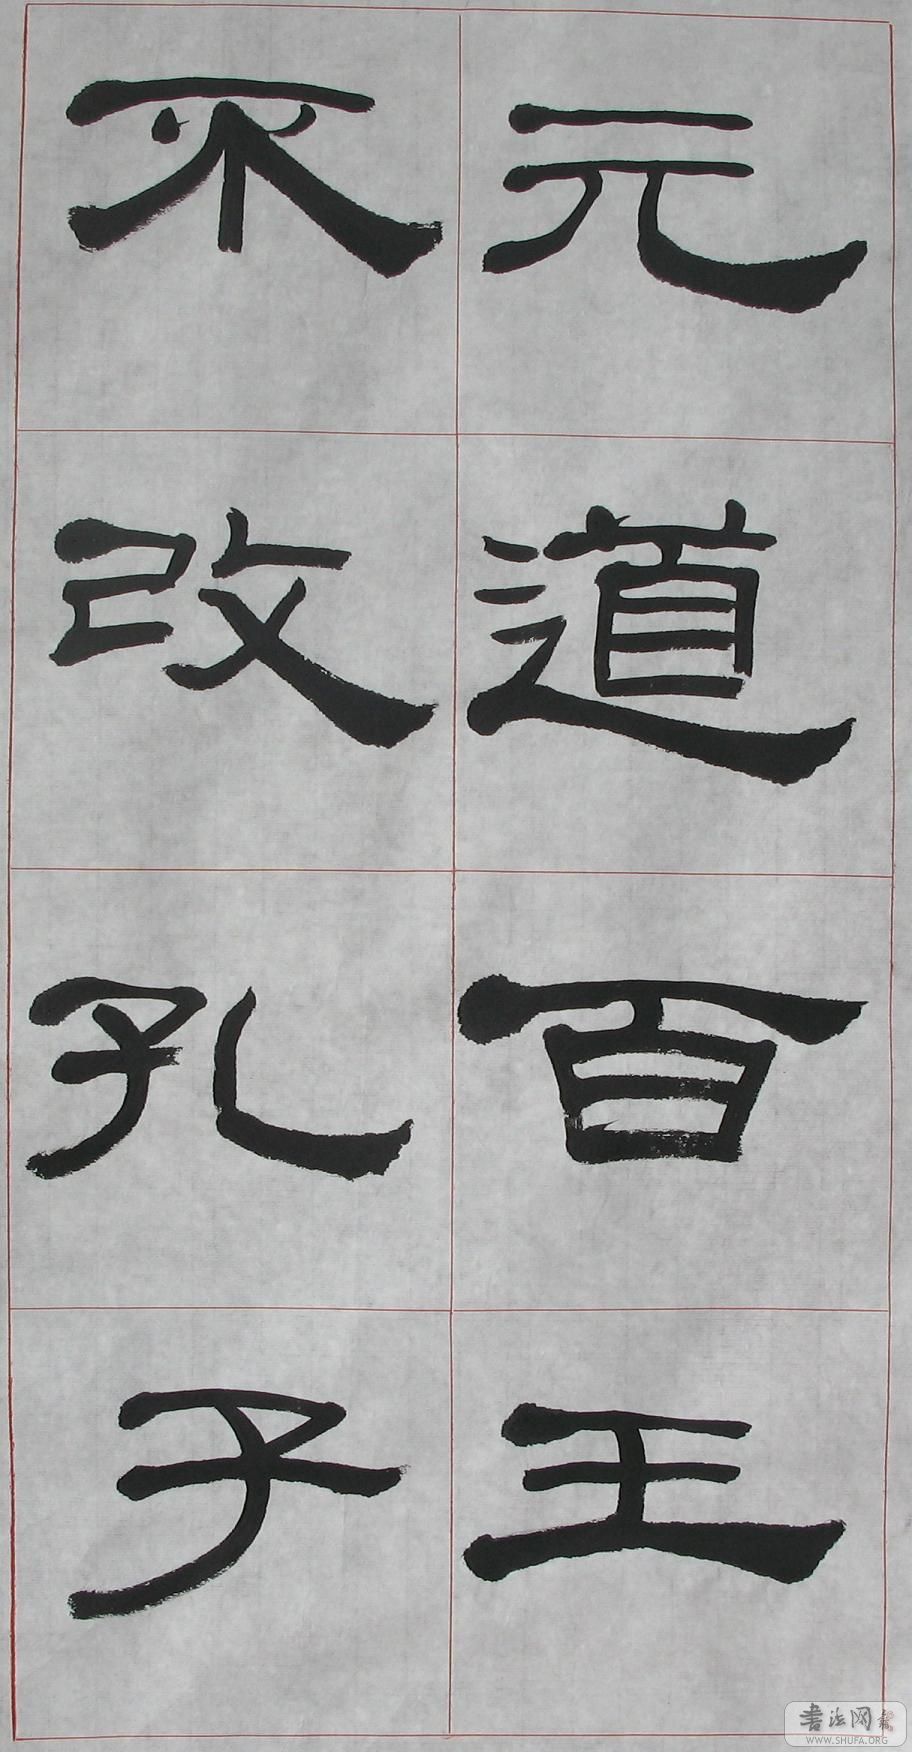 元道百王
不改孔子
书法网
WWW.SHUFA.ORG